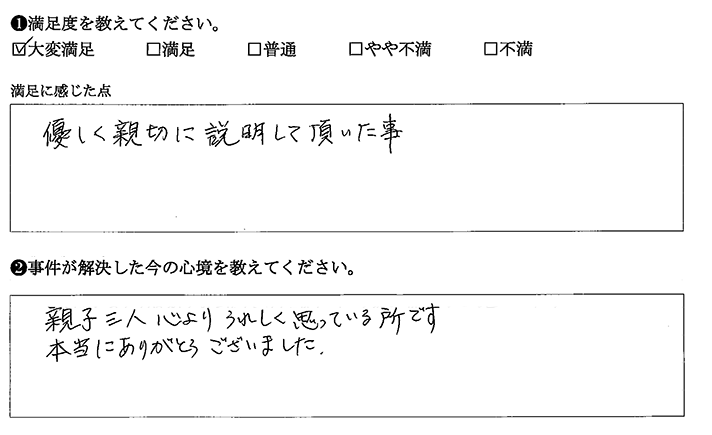 ❶満足度を教えてください。
☑大変満足 □満足 □普通 □やや不満 □不満
満足に感じた点
優しく親切に説明して頂いた事
❷事件が解決した今の心境を教えてください。
親子三人心よりうれしく思っている所です
本当にありがとうございました.